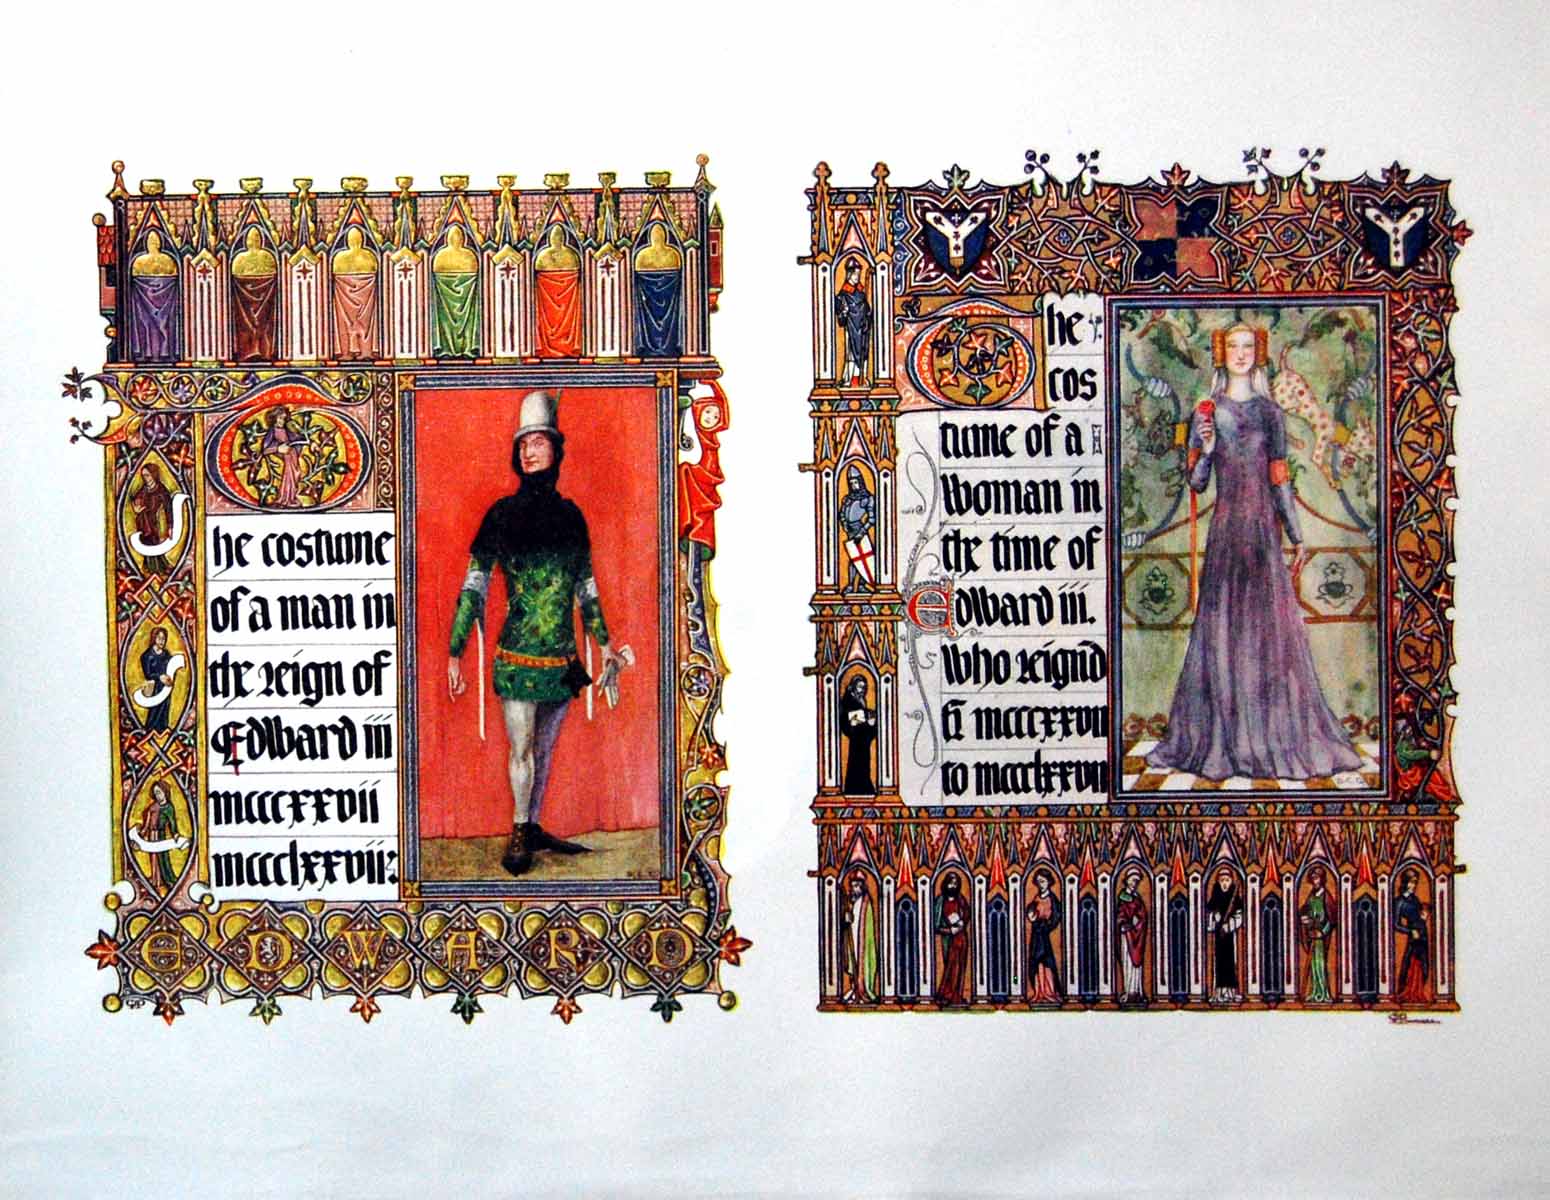 The costume
of a man in
the reign of
Edward iii
mcccxxvii
mccclxxvii:
EDWARD
The
cos
tume of a
Woman in
the time of
Edward iii.
Who reign'd
mcccxxvii
to mccclxxvii